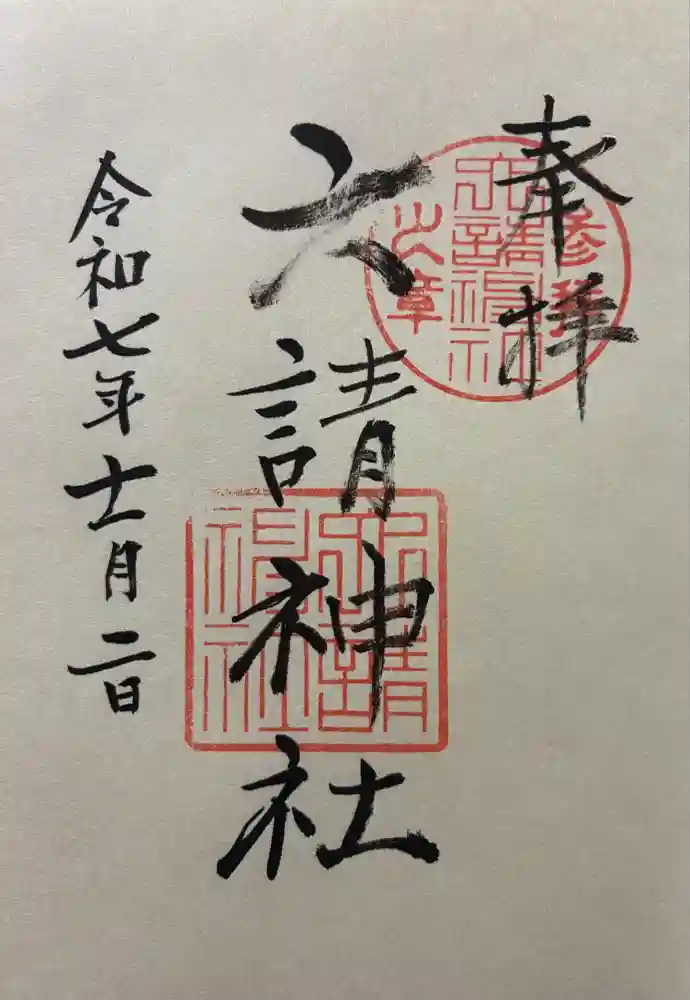 奉拝
六請神社
令和七年十一月二日
六請神社
参拝之章
六請神社